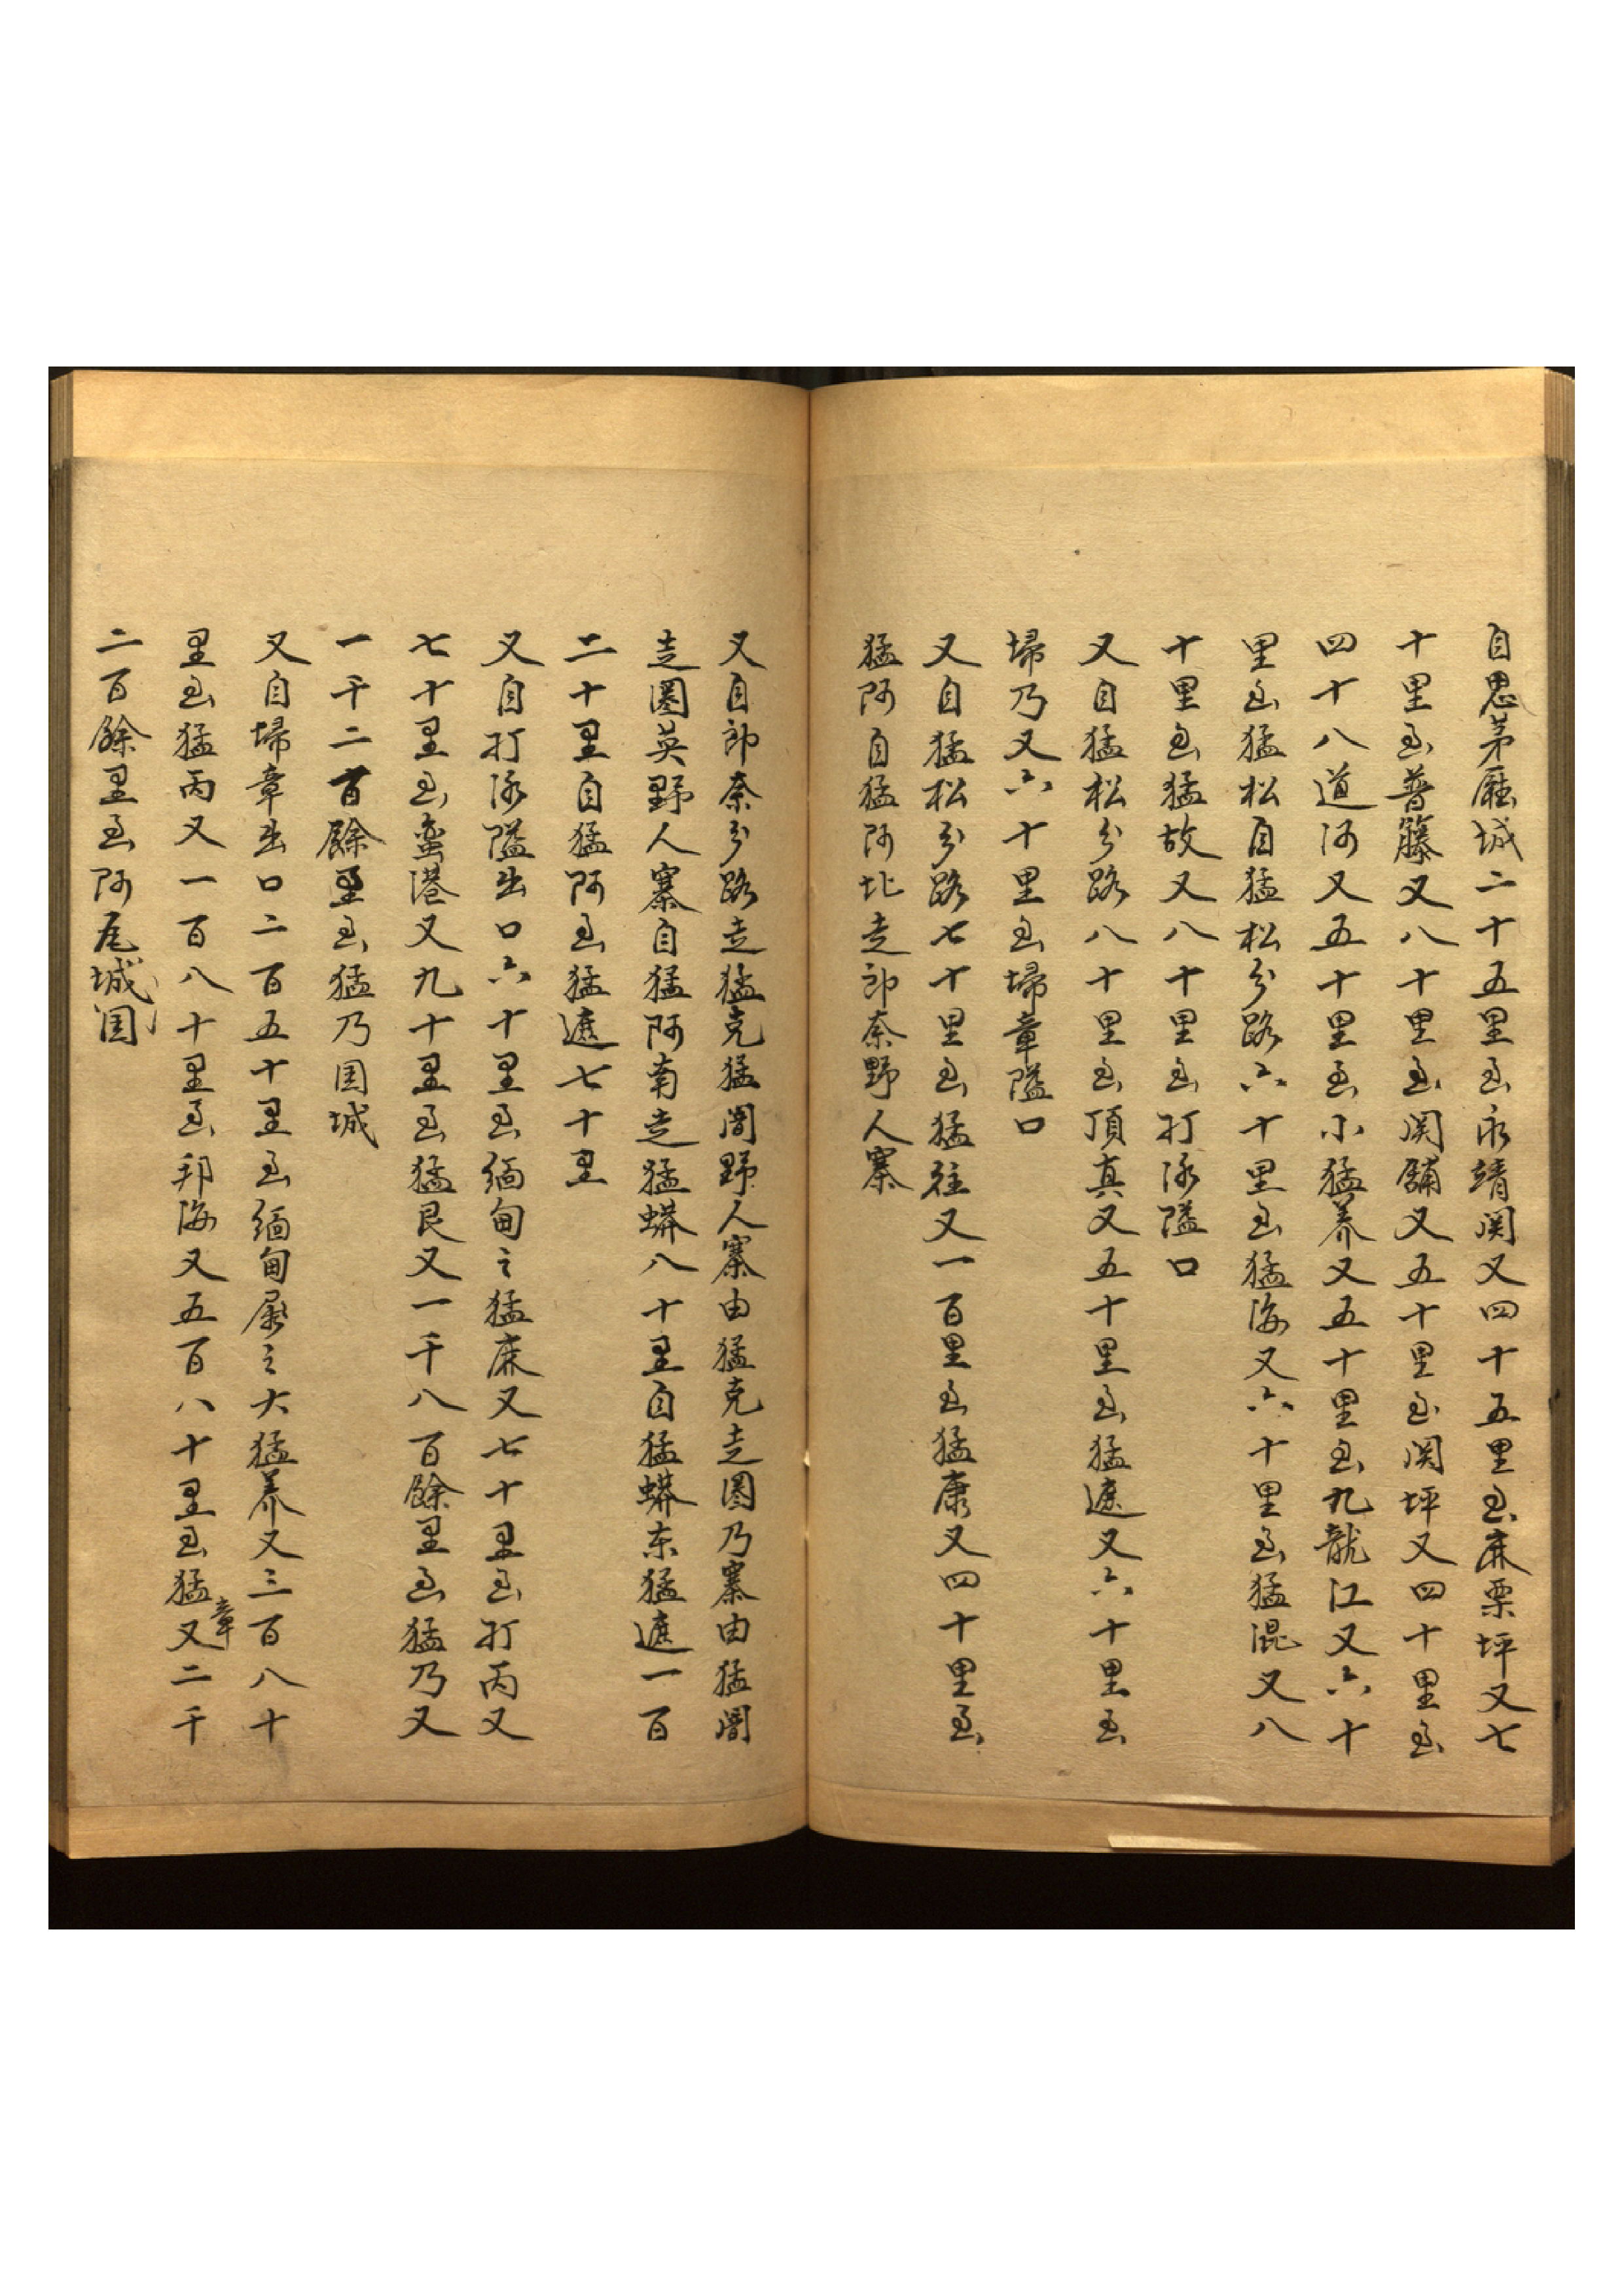 自思茅廳城二十五里至永靖関又四十五里至麻栗坪又七
十里至普籐又八十里至関舖又五十里至関坪又四十里至
四十八道河又五十里至小猛养又五十里至九龍江又六十
里至猛松自猛松分路六十里至猛海又六十里至猛混又八
十里至猛故又八十里至打泳隘口
又自猛松分路八十里至頂真又五十里至猛遮又六十里至
埽乃又六十里至埽章隘口
又自猛松分路七十里至猛往又一百里至猛康又四十里至
猛阿自猛阿北走郎奈野人寨
又自郎奈分路走猛克猛闇野人寨由猛克走圈乃寨由猛闇
走圏英野人寨自猛阿南走猛蟒八十里自猛蟒东猛遮一百
二十里自猛阿至猛遮七十里
又自打泳隘出口六十里至緬甸之猛麻又七十里至打丙又
七十里至蛮港又九十里至猛艮又一千八百餘里至猛乃又
一千二百餘里至猛乃囯城
又自埽章出口二百五十里至緬甸属之大猛养又三百八十
里至猛丙又一百八十里至邦海又五百八十里至猛章又二千
二百餘里至阿瓦城囯